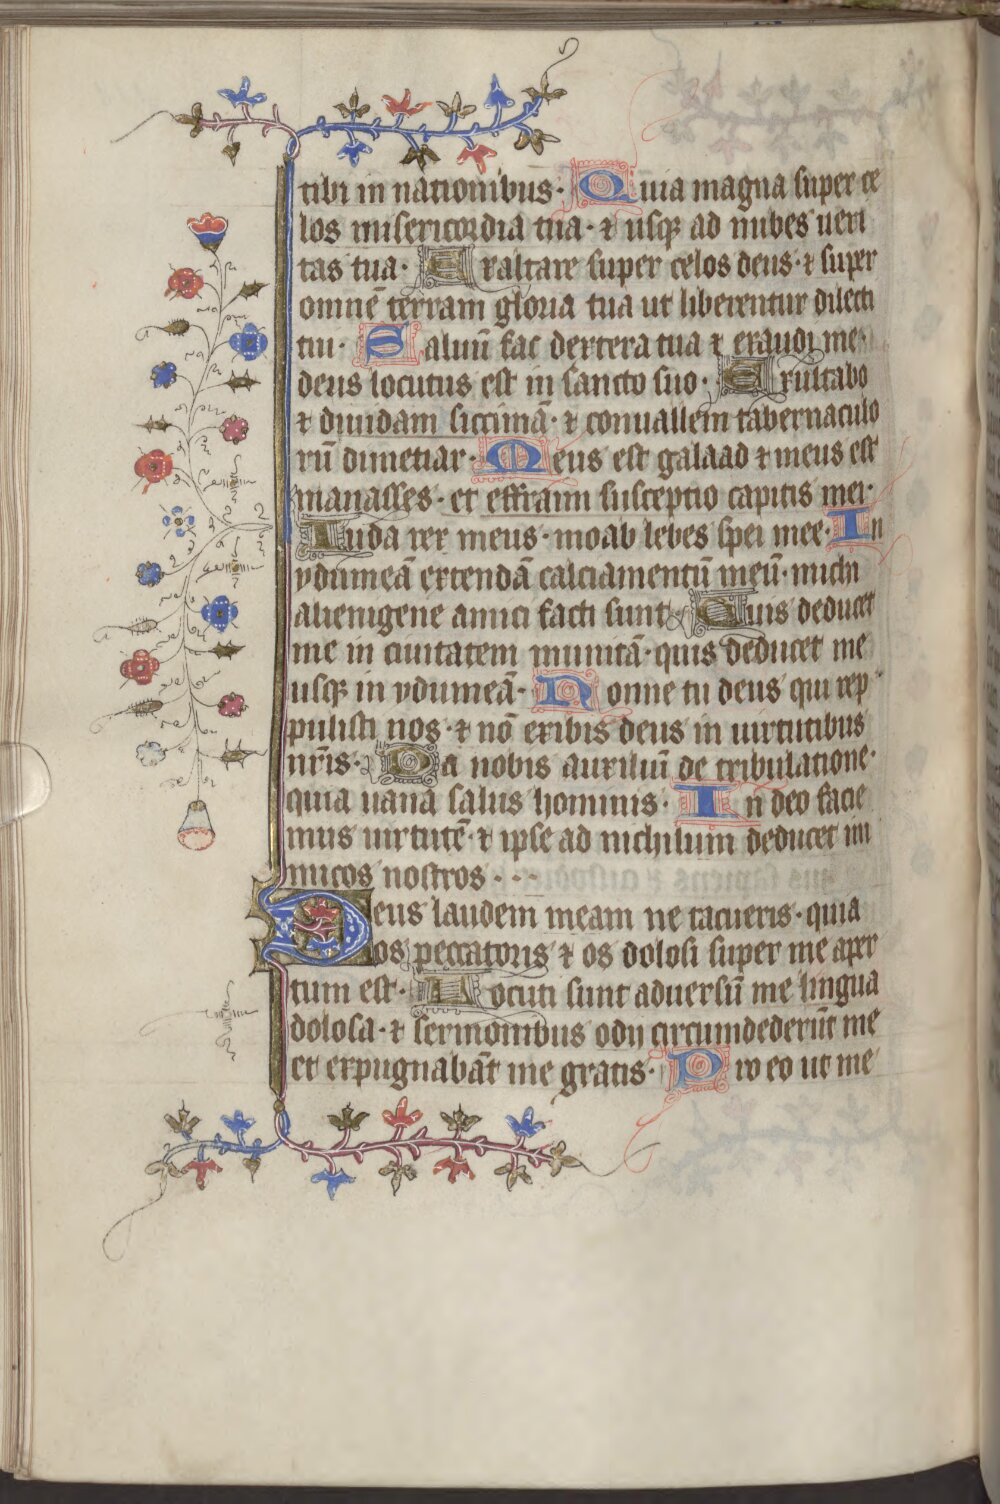 tibi in nationibus· Quia magna super ce
los misericordia tua· ⁊ usqꝫ ad nubes ueri
tas tua· Exaltare super celos deus· ⁊ super
omnē terram gloria tua ut liberentur dilecti
tui· Saluū fac dextera tua ⁊ exaudi me·
deus locutus est in sancto suo· Exultabo
⁊ diuidam siccimā· ⁊ conuallem tabernaculo
rū dimetiar· Meus est galaad ⁊ meus est
manasses· et effraim susceptio capitis mei·
Iuda rex meus· moab lebes spei mee· In
ydumeā extendā calciamentū meū· michi
alienigene amici facti sunt· Quis deducet
me in ciuitatem munitā· quis deducet me
usqꝫ in ydumeā· Nonne tu deus qui rep
pulisti nos· ⁊ nō exibis deus in uirtutibus
nr̄is· Da nobis auxiliū de tribulatione·
quia uana salus hominis· In deo facie
mus uirtutē· ⁊ ipse ad nichilum deducet ini
micos nostros · · ·
Deus laudem meam ne tacueris· quia
os peccatoris ⁊ os dolosi super me aper
tum est· Locuti sunt aduersū me lingua
dolosa· ⁊ sermonibus odij circumdederūt me
et expugnabāt me gratis· Pro eo ut me